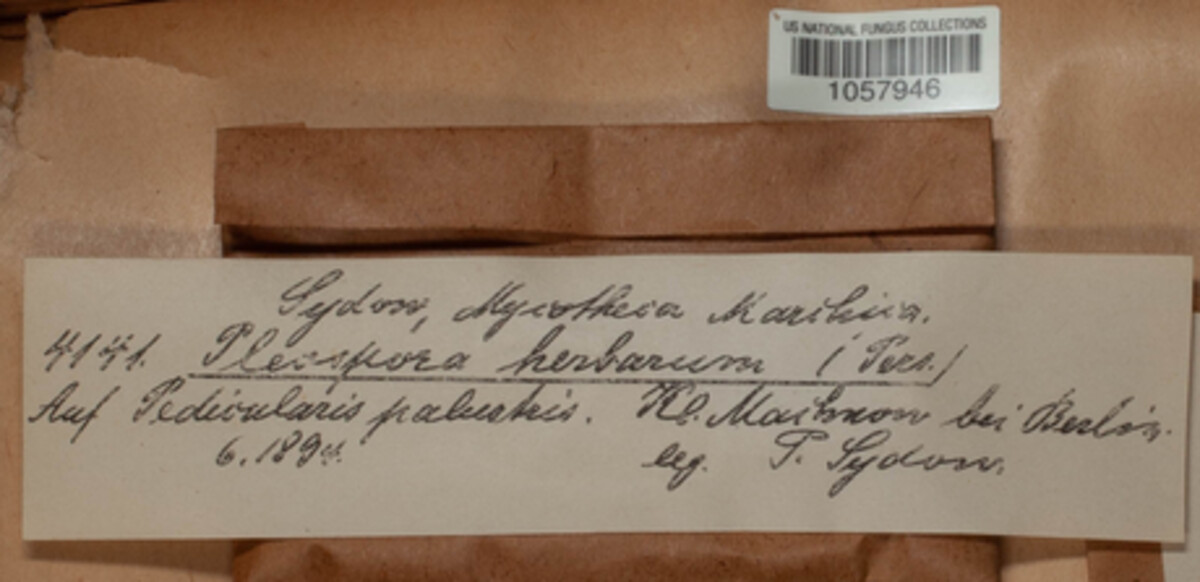 US NATIONAL FUNGUS COLLECTIONS
1057946
Sydow, Mycotheca Marchica.
4141. Pleospora herbarum (Pers.)
Auf Pedicularis palustris. Kl. Machnow bei Berlin.
6.1894. leg. P. Sydow.